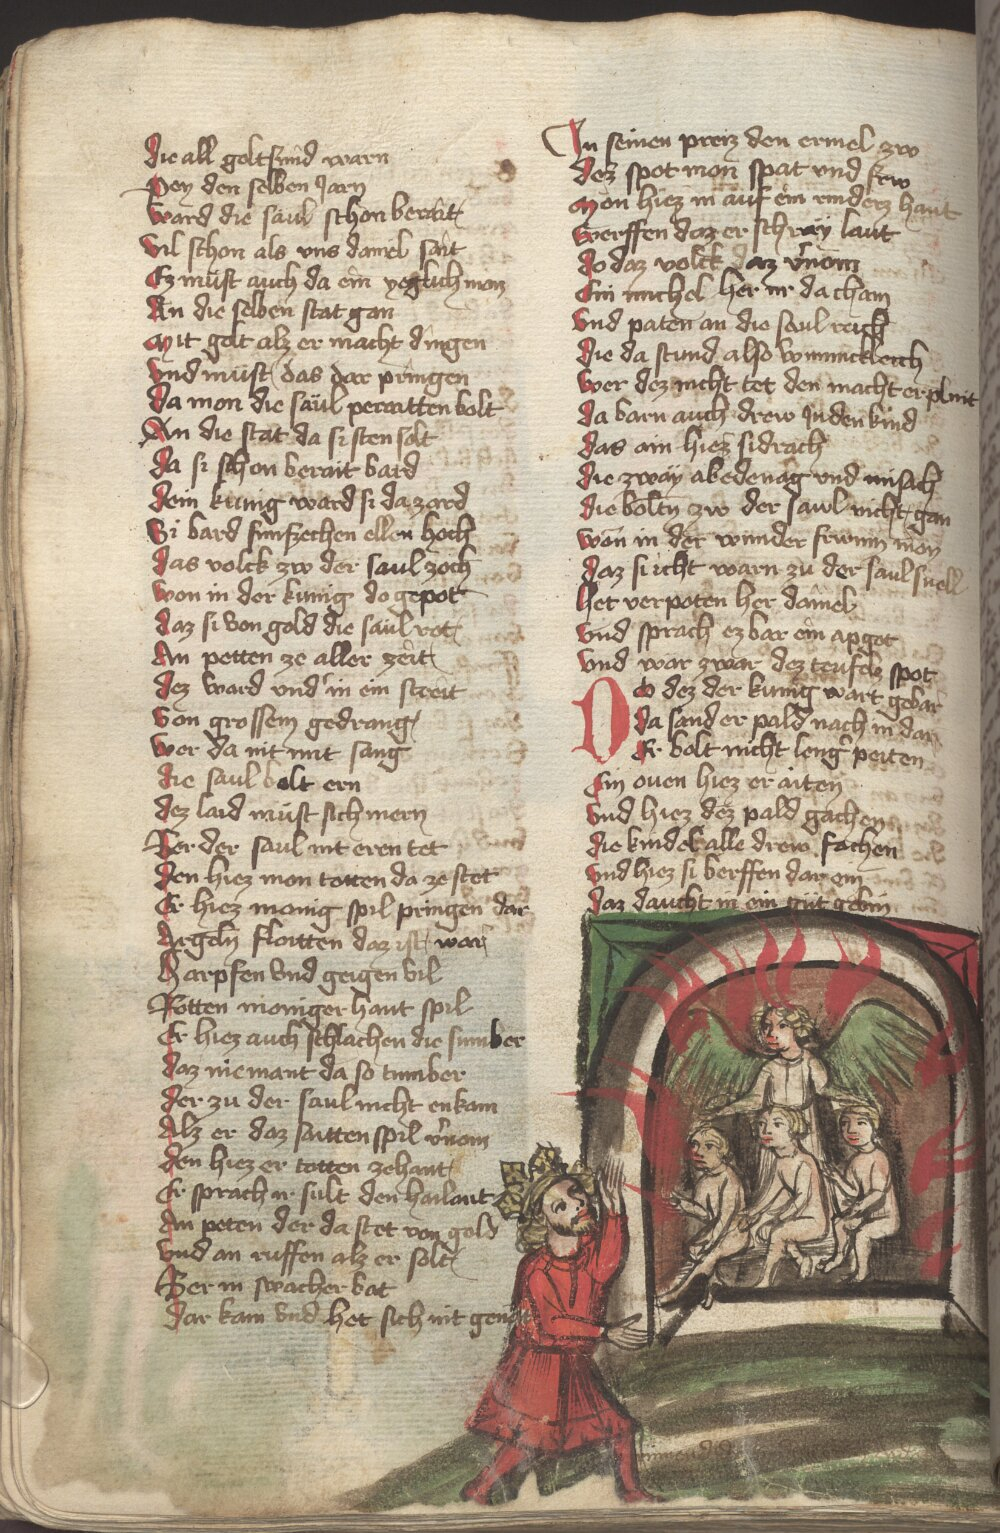 die all goltsmid warn
Pey den selben Jarn
ward die saul schon berait
vil schon als vns daniel sait
Ez müst auch da ein yeglich mon
An die selben stat gan
Mit golt alz er macht dingen
vnd müst das dar pringen
Da mon die säul peraitten bolt
An die stat da si sten solt
Da si schon berait bard
dem kunig ward si da zard
Si bard funfzechen ellen hoch
das volck zw der saul zoch
won in der kunig do gepot
daz si von gold die saul rot
An petten ze aller zeit
dez ward vnd in ein streit
von grossem gedrang
wer da nit mit sang
die saul bolt ern
dez laid müst sich mern
Ber der saul nit eren tet
den hiez mon totten da ze stet
Er hiez monig spil pringen dar
Argeln floitten daz ist war
Harpfen vnd geigen vil
Rotten moniger haut spil
Er hiez auch schlachen die sumber
daz niemant da so tumber
der zu der saul nicht enkam
Alz er daz saitten spil v'nom
den hiez er totten zehant
Er sprach ir sult den hailant
An peten der da stet von gold
vnd an ruffen alz er solt
Ber in swacher bat
dar kam vnd het sich nit
In seinen preiz den ermel zw
dez spot mon spat vnd frw
Mon hiez in auf ein rinderz haut
werffen daz er schray laut
do daz volck daz v'nom
Ein michel her ir da cham
vnd paten an die saul reich
die da stund also wunnickleich
wer dez nicht tet den macht er plait
da barn auch drew Juden kind
das ain hiez sidrach
die zway abedenag vnd misach
die boltn zw der saul nicht gan
won in der wunder frumm mon
daz si icht warn zu der saul snell
Het verpoten her daniel
vnd sprach ez bar ein apgot
vnd war zwar dez teufels spot
Do dez der kunig wart gebar
da sand er pald nach in dar
Er bolt nicht leng' peiten
Ein ouen hiez er aiten
vnd hiez dez pald gachen
die kindel alle drew fachen
vnd hiez si berffen dar ein
daz daucht in ein gut gebin